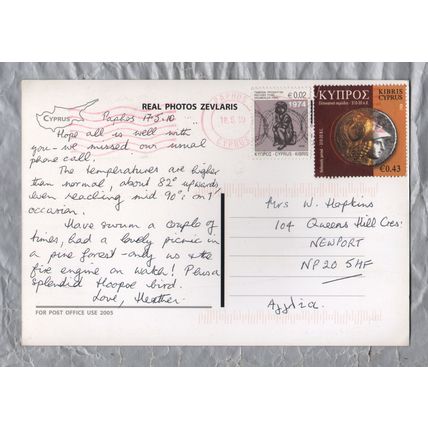 REAL PHOTOS ZEVLARIS
CYPRUS
Paphos 17.5.10
Hope all is well with
you - we missed our usual
phone call.
The temperatures are higher
than normal, about 82° upwards
even reaching mid 90's on 1
occasion.
Have swum a couple of
times, had a lovely picnic in
a pine forest - only us & the
fire engine on watch! Plus a
splendid Hoopoe bird.
Love, Heather.
FOR POST OFFICE USE 2005
€0.02
1974
ΚΥΠΡΟΣ · CYPRUS · KIBRIS
ΚΥΠΡΟΣ
KIBRIS
CYPRUS
€0.43
Mrs W. Hopkins
104 Queens Hill Cres.
NEWPORT
NP20 5HF
Αγγλία.